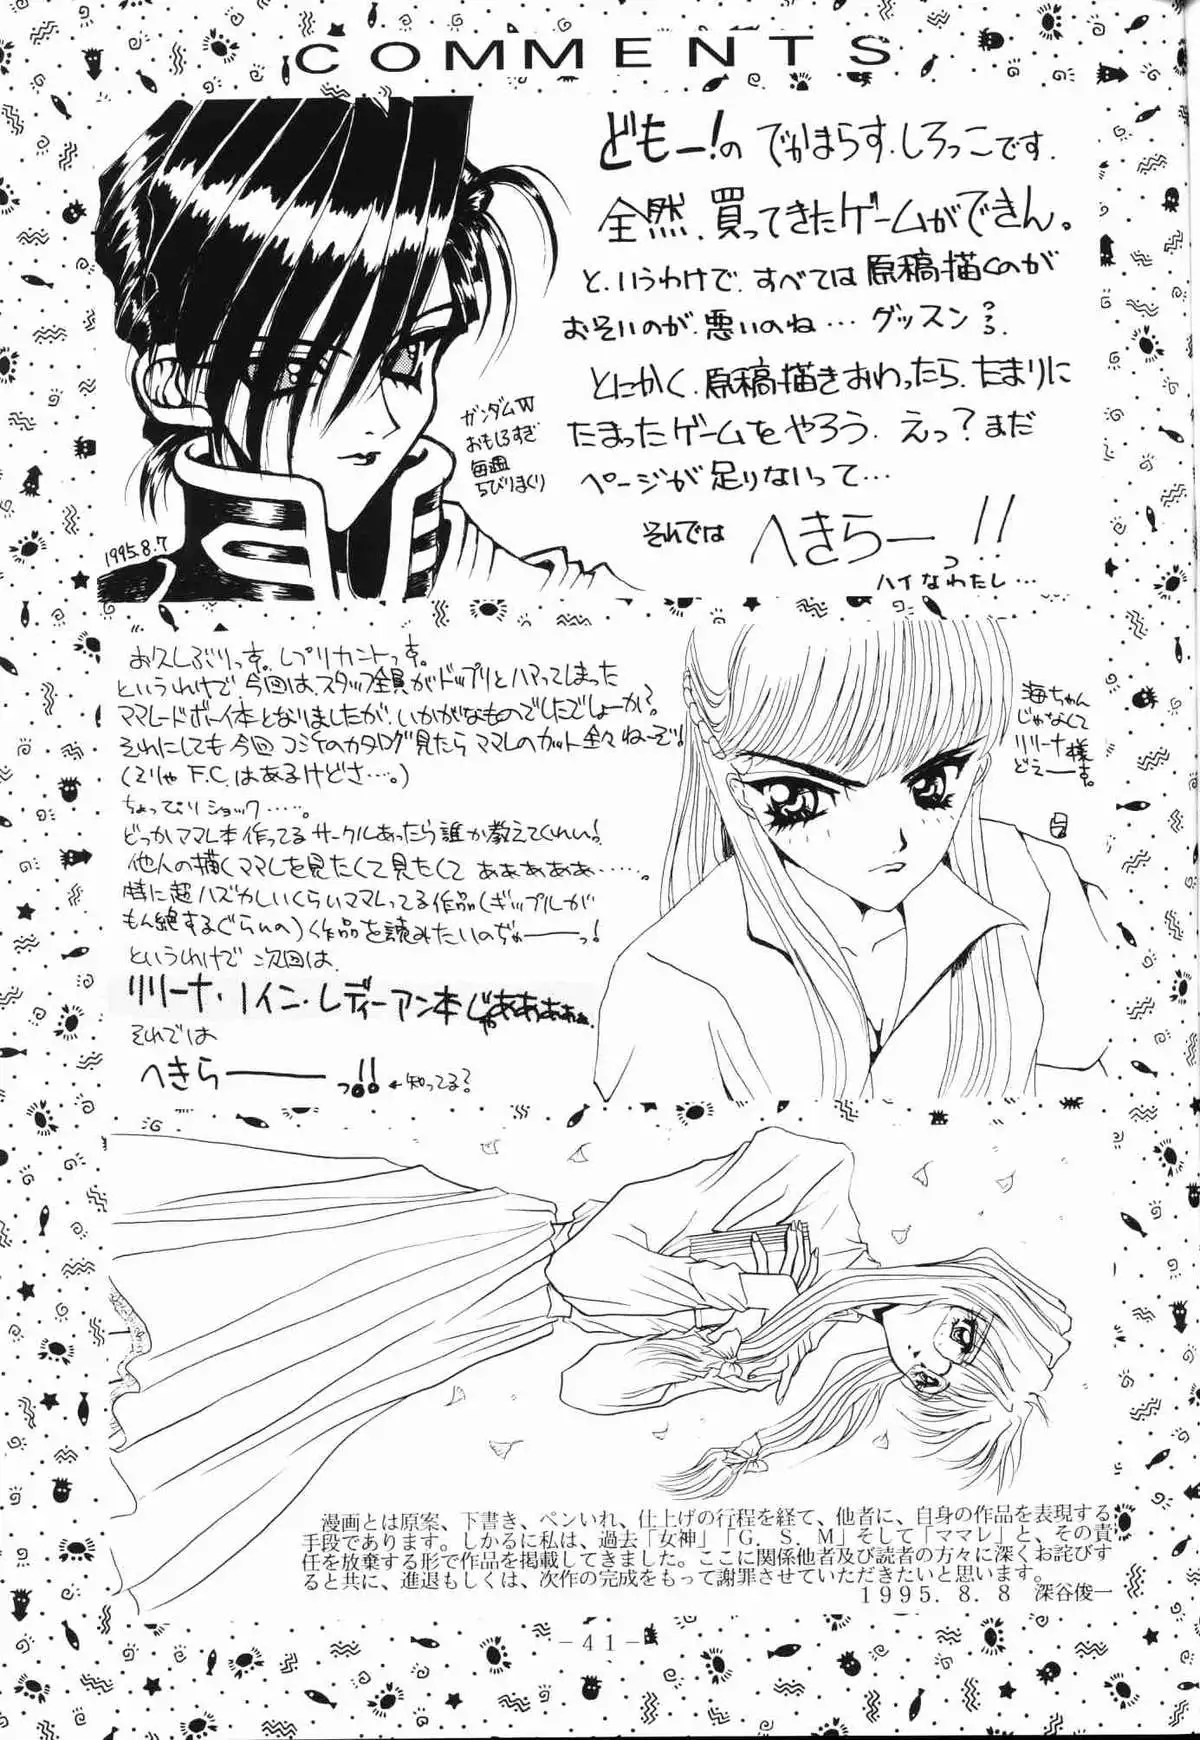 COMMENTS
どもー!の でかまらす.しろっこです.
全然.買ってきたゲームができん。
と.いうわけで.すべては原稿描くのが
おそいのが.悪いのね…グッスン
とにかく.原稿描きおわったら.たまりに
たまったゲームをやろう.えっ?まだ
ページが足りないって…
それでは へきらーっ!!
ハイなわたし…
ガンダムW
おもしろすぎ
毎週
ちびりまくり
1995.8.7
お久しぶりっす。レプリカントっす。
というわけで今回は.スタッフ全員がドップリとハマってしまった
ママレードボーイ本となりましたが.いかがなものでしたでしょーか?
それにしても今回コミケのカタログ見たらママレのカット全々ねーぞ!
(そりゃF.C.はあるけどさ…。)
ちょっぴりショック……。
どっかママレ本作ってるサークルあったら誰か教えてくれい!
他人の描くママレを見たくて見たくてああああああ……。
特に超ハズかしいくらいママレってる作品(ギップルが
もん絶するぐらいの)作品を読みたいのぢゃーーっ!
というわけで次回は.
リリーナ・ノイン・レディーアン本じゃああああぁ.
それでは
へきらーーっ!! ←知ってる?
海ちゃん
じゃなくて
リリーナ様
どえーーす。
漫画とは原案、下書き、ペンいれ、仕上げの行程を経て、他者に、自身の作品を表現する
手段であります。しかるに私は、過去「女神」「G.S.M」そして「ママレ」と、その責
任を放棄する形で作品を掲載してきました。ここに関係他者及び読者の方々に深くお詫びす
ると共に、進退もしくは、次作の完成をもって謝罪させていただきたいと思います。
1995.8.8 深谷俊一
-41-